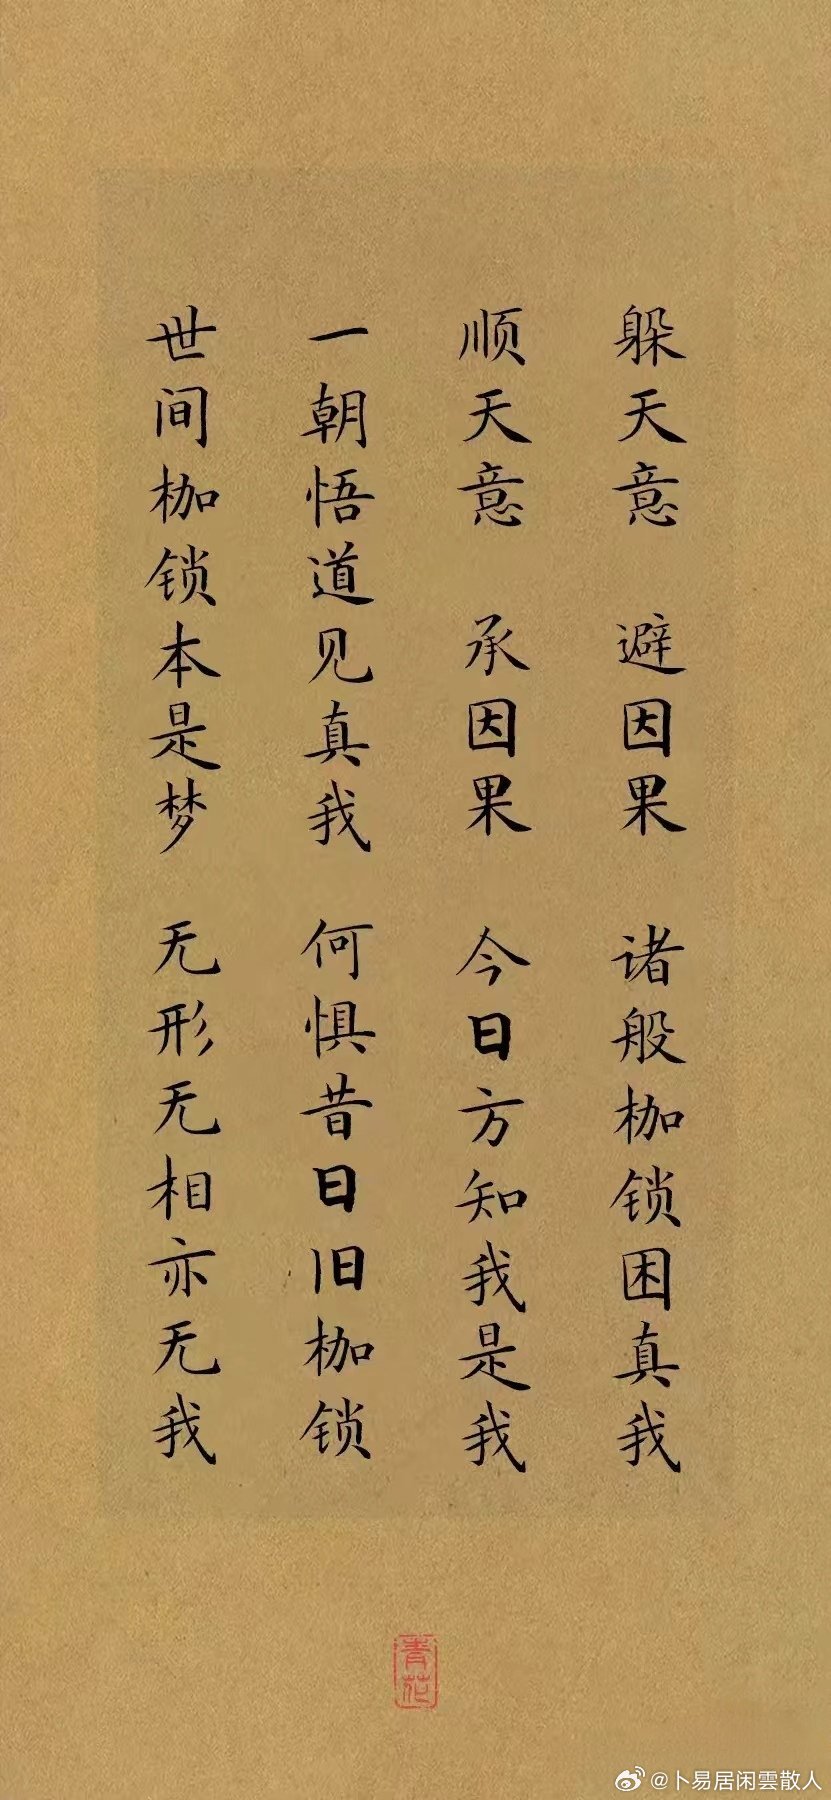 躲天意 避因果 诸般枷锁困真我
顺天意 承因果 今日方知我是我
一朝悟道见真我 何惧昔日旧枷锁
世间枷锁本是梦 无形无相亦无我
青花
@卜易居闲雲散人